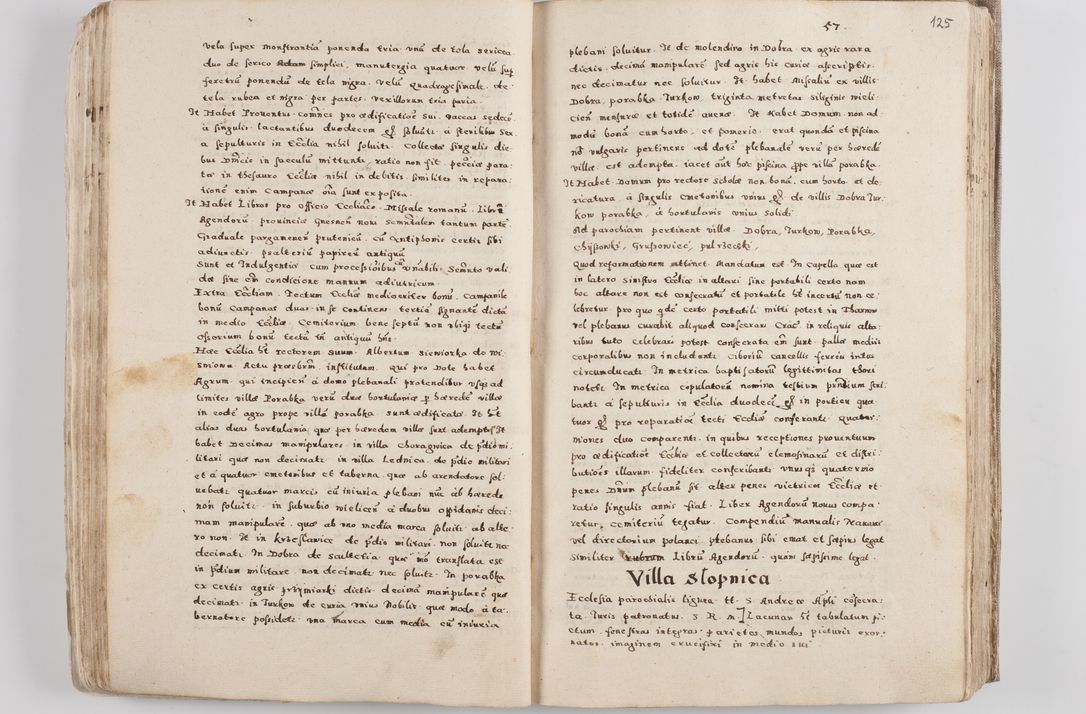 vela super monstrantia ponenda tria unū de tola sericea
duo de serico simplici, manutergia quatuor velū sup
feretrū ponendū de tela nigra. velū quadragesimale de
tela rubea et nigra per partes. vexillorum tria paria.
It Habet Proventus comnes pro aedificatione sui. vaccas sedecē
à singulis lactantibus duodecem solvit à sterilibus sex
a sepulturis in Ecclia nihil solvit. Collectae singulis die
bus Dñicis in sacculū mittunt, ratio non fit. pecciae para
tae in thesauro Eccliae nihil in debitis. similiter in repara:
tionē enim Campanae oīa sunt exposita.
It Habet Libros pro officio Eccliaco. Missale romanū. Librū
Agendorū provinciae Gnesneñ novi tantum parte
Graduale pargamenen prutenicū. Cū Antiphonis certis sibi
adiunctis psalteriū papireū antiquū
Sunt et Indulgentiae cum processioībus vali
dae sine condicione manuum adiutricum.
Extra Eccliam. Tectum Eccliae mediocriter bonū. Campanile
bonū Campanas duas in se continens tertia signante dictā
in medio Eccliae. Cemiterium bene septū non ubiqi tectū
Ossorium bonū tectū antiquū
Haec Ecclia hēt rectorem suum Albertum Sieniorka do wi
smiona Actu praesbrm institutum. qui pro Dote habet
Agrum. qui incipien à domo plebanali protenditur usqs ad
limites villae Porabka verū duae hortulaniae p haeredē villae
in eodē agro prope villā porabka sunt aedificatae. It hēt
alias duas hortulania quae per haeredem villae sunt ademptae It
habet Decimas manipulares in villa Choragwica de pdio mi
litari quae non decimat. in villa Lednica de pdio militari
et à quatuor cmetonibus et taberna quae ab arendatore sol
vebat quatuor marcis cū iniuria plebani nūc ab haerede
non solvit. in suburbio wielicen à duobus oppidanis deci
mam manipularē quae ab uno media marca solvit ab alte
ro non. It in krzeslawice de pdio militari non solvit nec
decimat. In Dobra de scultetia quae translata est
in pdium militare non decimat nec solvit. In porabka
ex certis agris przymiarki dictis decimā manipularē quae
decimat. in Turkow de curia unius Nobilis quae modo à ta:
bernatore possidet una marca cum media cū iniuria
57. 125
plebani solvitur. It de molendino in Dobra ex agris rara
dictis decimā manipularē sed agris his curiae ascriptis
nec decimatur nec solvitur. It habet Missaliū ex villis
Dobra, porabka, Turkow, triginta metretas siliginis wieli:
cien mensurae et totidē avenae. It Habet Domum non ad
modū bonā cum horto, et pomerio. erat quondā et piscina
nō vulgaris pertinens ad dotē plebanalē verū per haeredē
villae est adempta. iacet aūt hoc piscina ppe villā porabka.
It Habet Domum pro rectore scholae non bonā, cum horto. et cle
ricatura. à singulis cmetonibus unius de villis Dobra Tur
kow porabka, à hortulanis unius solidi
Ad parochiam pertinent villae Dobra, Turkow, Porabka,
Chyssowki, Grussowiec, pulrzeczki,
Quod reformationem attinet. Mandatum est In Capella quae est
in latere sinistro Eccliae in altari sine portatili certo nam
hoc altare non est consecratū et portatile hēt incertū non ce
lebretur pro quo certo portatili mitti potest in
vel plebanus curabit aliquod consecrari Crac. in reliquis alta:
ribus tuto celebrari potest consecrata enim sunt. pallae mediis
corporalibus non includant. Ciboriū cancellis ferreis intus
circumducati. In metrica baptisatorū legittimitas thori
notet. In metrica copulatorū nomina testium pntium scri
bant à sepulturis in Ecclia duodecē in porticu qua
tuor pro reparatiōe tecti Eccliae conferant. Quater:
niones duo comparent. in quibus receptiones proventuum
pro aedificatiōe Eccliae et collectarū elemosinarū et distri:
butiōes illarum fideliter conscribant unus qs quaternio
penes Dnum plebanū sit alter penes vietricos Eccliae et
ratio singulis annis fiat. Liber Agendorū novus compa
retur, cemiteriū tegatur. Compendiū manualis Navarri
vel directorium polanci plebanus sibi emat et saepius legat
similiter rubrum Librū Agendorū quam saepissime legat
Villa Slopnica
Ecclesia parochialis lignea tt. S. Andreae Apli cōsecra:
ta. Iuris patronatus S. R. M] Lacunar hēt tabulatum pi
ctum. fenestras integras parietes mundos picturis exor
natos. imaginem crucifixi in medio sui